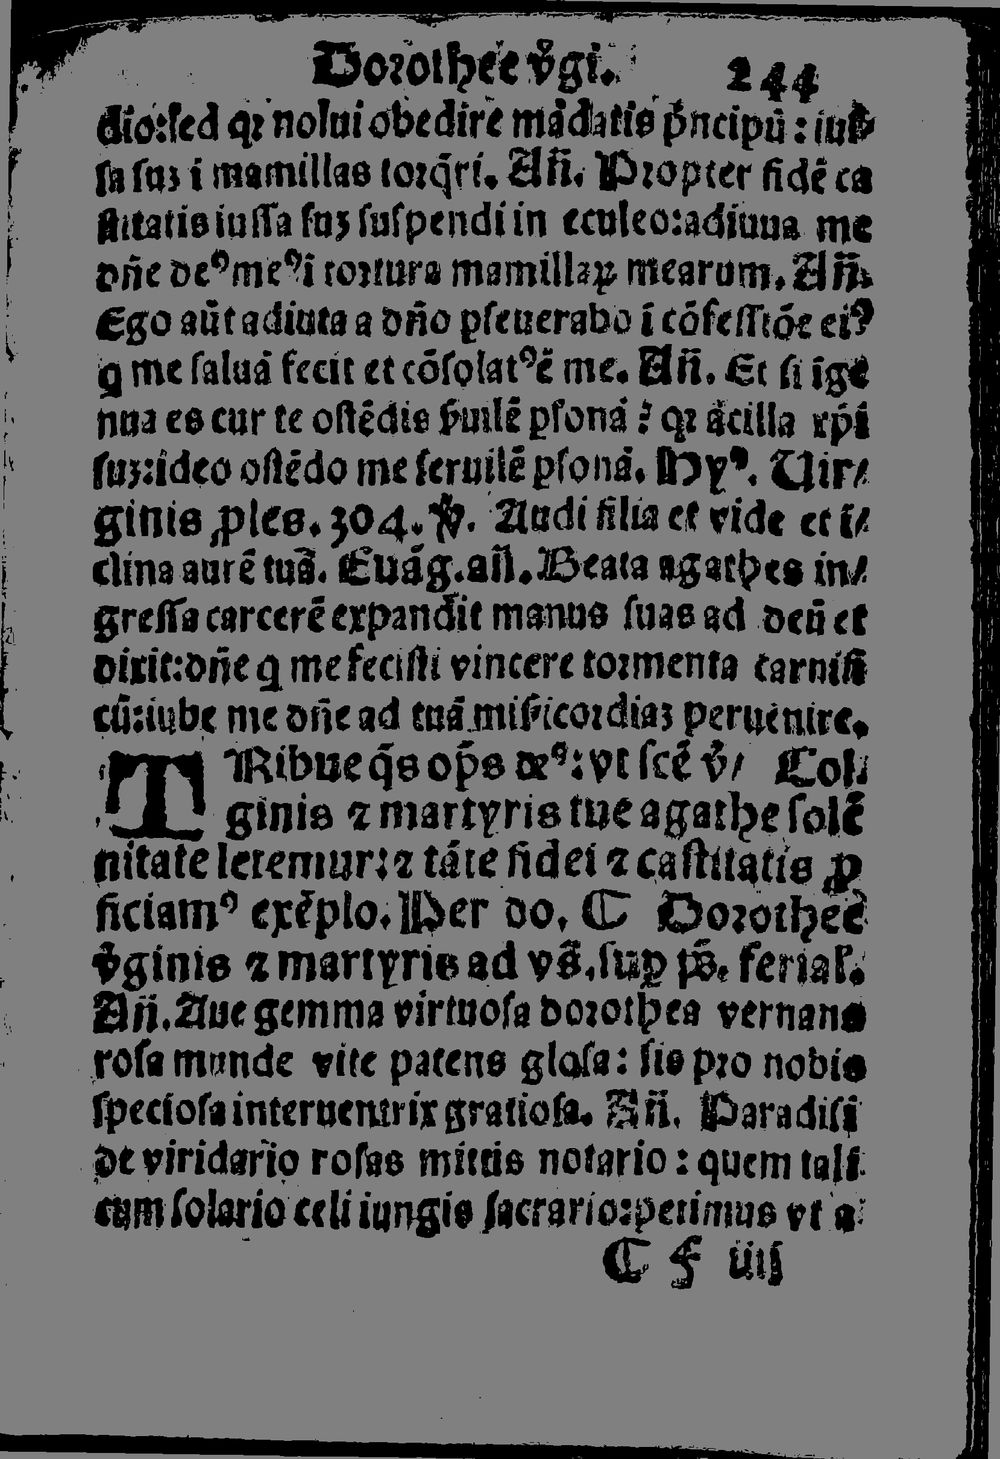 Dorothee v̉gi. 244
dio:ſed qꝛ nolui obedire mãdatis p̃ncipũ: iuſ
ſa ſuꝫ ĩ mamillas torq̃ri. Añ. Propter fidẽ ca
ſtitatis iuſſa ſuꝫ ſuſpendi in eculeo:adiuua me
dñe deꝰ meꝰ ĩ tortura mamillaꝝ mearum. Añ.
Ego aũt adiuta a dño ꝑſeuerabo ĩ cõfeſſiõe eiꝰ
q me ſaluã fecit et cõſolatꝰ ẽ me. Añ. Et ſi ĩge
nua es cur te oſtẽdis ẜuilẽ ꝑſonã? qꝛ ãcilla xp̃i
ſuꝫ:ideo oſtẽdo me ſeruilẽ ꝑſonã. Hyꝰ. Uir⸗
ginis ꝓles. 304. ℣. Audi filia et vide et ĩ⸗
clina aurẽ tuã. Euãg.añ. Beata agathes in⸗
greſſa carcerẽ expandit manus ſuas ad deũ et
dixit:dñe q me feciſti vincere tormenta carnifi
cũ:iube me dñe ad tuã miẜicordiaꝫ peruenire.
TRibue q̃s op̃s deꝰ:vt ſcẽ v̉⸗ Col.
ginis ⁊ martyris tue agathe ſolẽ
nitate letemur:⁊ tãte fidei ⁊ caſtitatis ꝓ
ficiamꝰ exẽplo. Per do. C Dorothee
v̉ginis ⁊ martyris ad vẽs̃.ſuꝑ pš. ferial'.
Añ. Aue gemma virtuoſa dorothea vernans
roſa munde vite patens gloſa: ſis pro nobis
ſpecioſa interuentrix gratioſa. Añ. Paradiſi
de viridario roſas mittis notario: quem tali
cum ſolario celi iungis ſacrario:petimus vt a
C f iiij